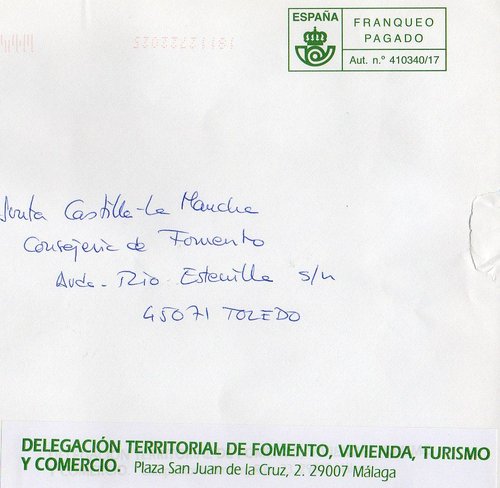 ESPAÑA
FRANQUEO
PAGADO
Aut. n.º 410340/17
Junta Castilla-La Mancha
Consejeria de Fomento
Avda. Rio Estenilla s/n
45071 TOLEDO
DELEGACIÓN TERRITORIAL DE FOMENTO, VIVIENDA, TURISMO
Y COMERCIO. Plaza San Juan de la Cruz, 2. 29007 Málaga